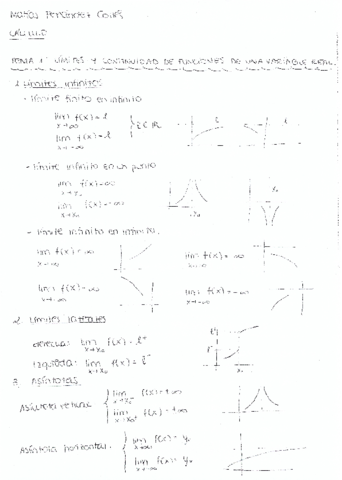 CÁLCULO
TEMA 1: LÍMITES Y CONTINUIDAD DE FUNCIONES DE UNA VARIABLE REAL
1. Límites infinitos
- Límite finito en infinito
lim f(x) = l
x→+∞
lim f(x) = l
x→-∞
l ∈ ℝ
- Límite infinito en un punto
lim f(x) = ∞
x→x₀
lim f(x) = -∞
x→x₀
x₀
- Límite infinito en infinito.
lim f(x) = ∞
lim f(x) = ∞
lim f(x) = -∞
lim f(x) = -∞
2. Límites laterales
derecha: lim f(x) = l⁺
x→x₀⁺
izquierda: lim f(x) = l⁻
x→x₀⁻
3. Asíntotas
Asíntota vertical
lim f(x) = ±∞
lim f(x) = ±∞
Asíntota horizontal
lim f(x) = y₀
lim f(x) = y₀